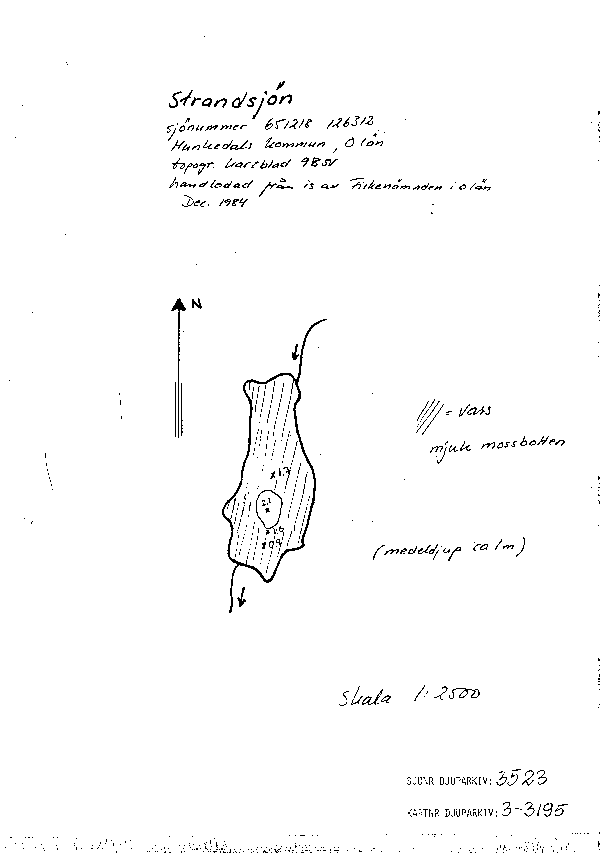 Strandsjön
sjönummer 651218 126312
Munkedals kommun, O län
topogr. kartblad 9B SV
handlodad från is av Fiskenämnden i O län
Dec. 1984
N
//// = vass
mjuk mossbotten
x 1.7
2.1
x
x 1.6
x 0.9
(medeldjup ca 1 m)
Skala 1:2500
SJÖNR DJUPARKIV: 3523
KARTNR DJUPARKIV: 3-3195